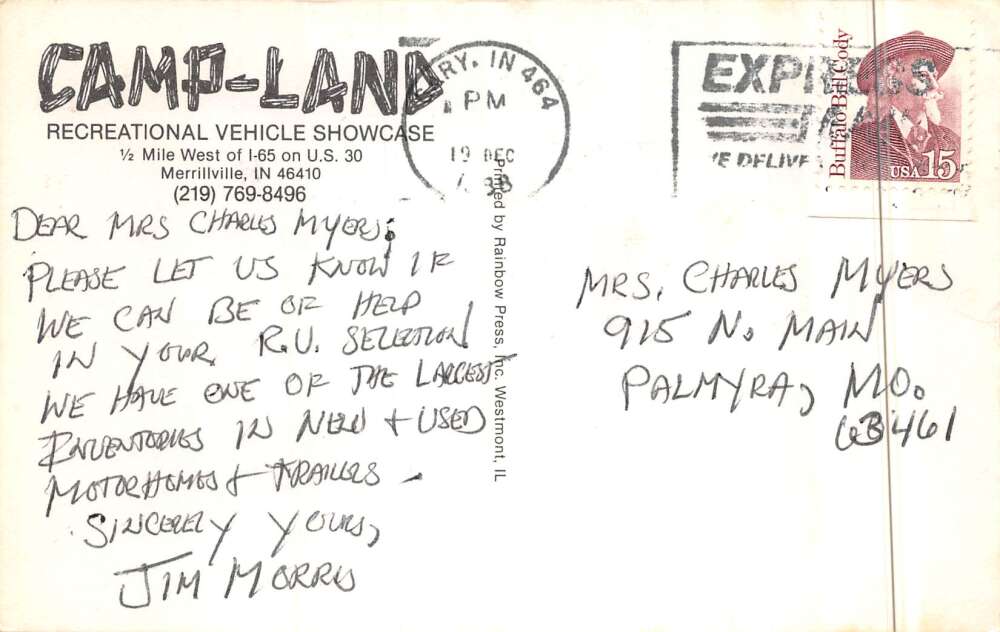 CAMP-LAND
RECREATIONAL VEHICLE SHOWCASE
½ Mile West of I-65 on U.S. 30
Merrillville, IN 46410
(219) 769-8496
DEAR MRS CHARLES MYERS:
PLEASE LET US KNOW IF
WE CAN BE OF HELP
IN YOUR R.V. SELECTION!
WE HAVE ONE OF THE LARGEST
INVENTORIES IN NEW + USED
MOTORHOMES + TRAILERS.
SINCERELY YOURS,
JIM MORRIS
Printed by Rainbow Press, Inc. Westmont, IL
RY, IN 464
PM
19 DEC
EXPRESS
MAIL
WE DELIVER
Buffalo Bill Cody
USA 15
MRS. CHARLES MYERS
915 N. MAIN
PALMYRA, MO.
63461